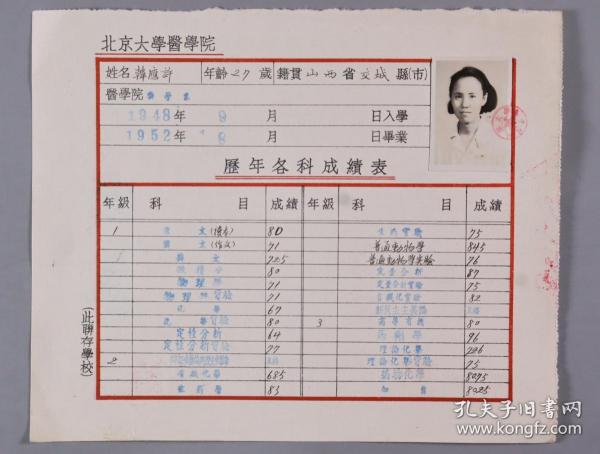 北京大學醫學院
姓名 韓應許 年齡 27 歲 籍貫 山西 省 交城 縣(市)
醫學院 藥學系
1948年 9 月 日入學
1952年 8 月 日畢業
歷年各科成績表
年級 科 目 成績 年級 科 目 成績
1 國文(讀本) 80 75
國文(作文) 71 普通動物學 845
英文 725 普通動物學實驗 76
微積分 80 定量分析 87
物理學 71 定量分析實驗 75
物理學實驗 71 有機化實驗 82
化學 67 新民主主義論
化學實驗 80 3 高等有機 80
定性分析 64 藥劑學 96
定性分析實驗 77 理論化學 786
2 理論化學實驗 75
有機化學 685 藥物化學 8075
生藥學 83 8025
(此聯存學校)
孔夫子旧书网
www.kongfz.com